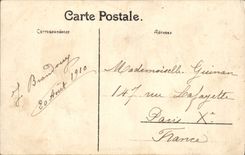 Carte Postale.
Correspondance
Adresse
J. Brandouy
30 Août 1910
Mademoiselle Guinan
147 rue Lafayette
Paris Xe
France